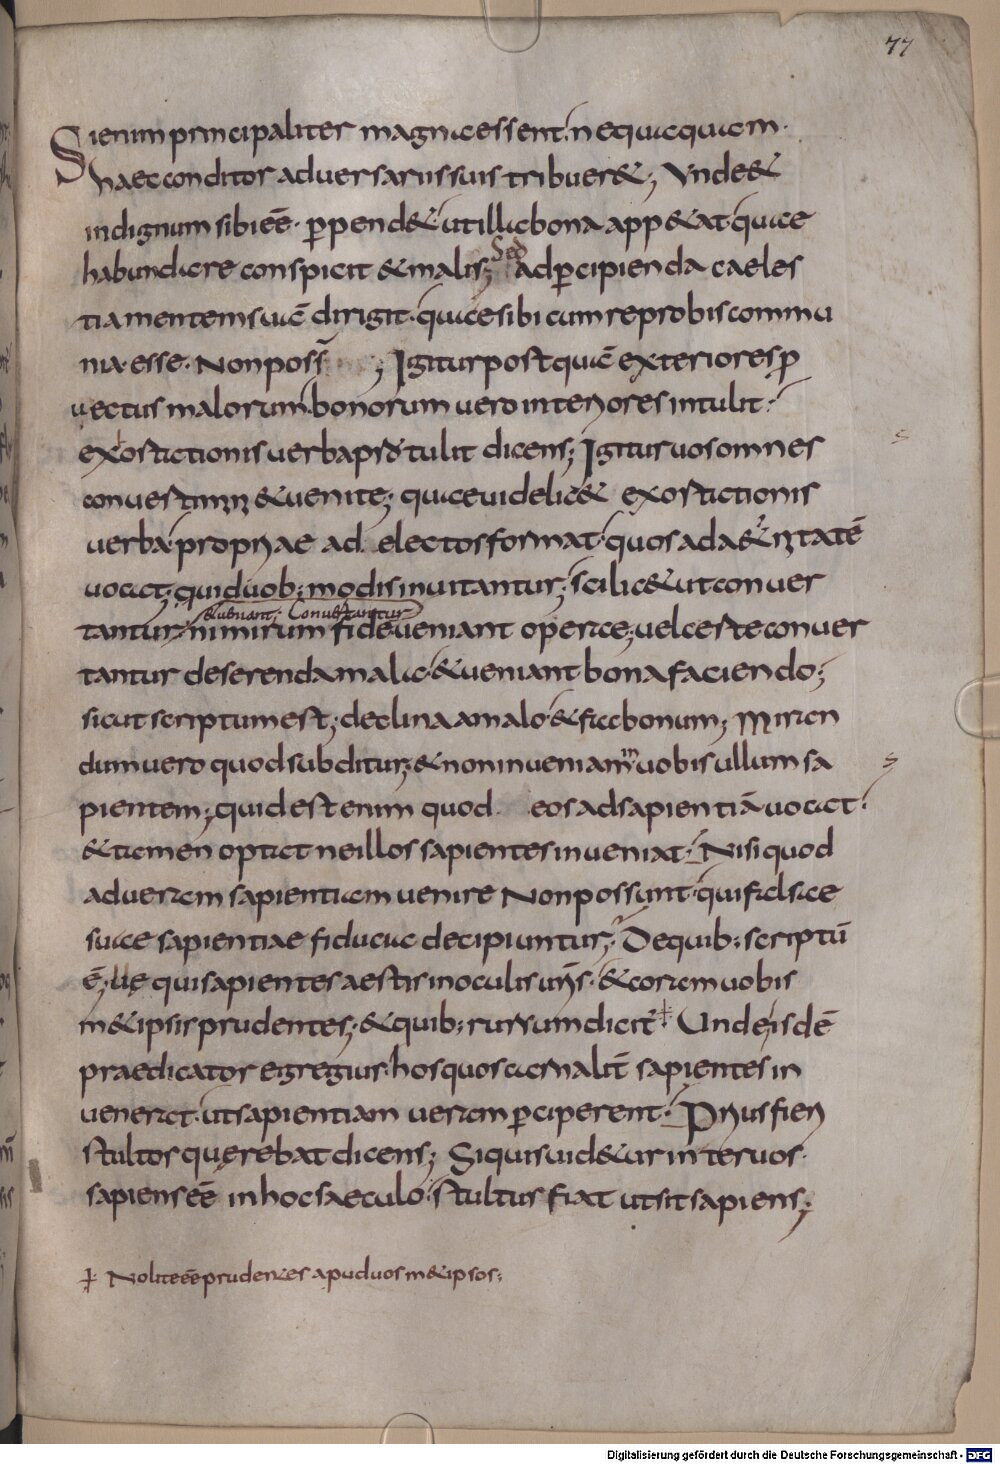 77
Si enim principaliter magna essent. nequaquam
haec conditor adversariis suis tribueret; Unde &
indignum sibi eē. ꝑpendet ut illa bona appetat. quae
habundare conspicit & malis; Sed ad ꝑcipienda caeles
tia mentem suā dirigit. quae sibi cum reprobis commu
nia esse. Non poss̄; Igitur postquā exteriores ꝓ
uectus malorum. bonorum uero interiores intulit.
exortationis uerba protulit dicens; Igitur uos omnes
conuertimini & uenite; quae uidelicet exortationis
uerba proprie ad electos format. quos ad aeternitatē
uocat; qui duob; modis inuitantur; scilicet ut conuer
& ueniant. Conuertantur
tantur nimirum fide ueniant opere; uel certe conuer
tantur deserenda mala. & ueniant bona faciendo;
sicut scriptum est; declina a malo & fac bonum; Miran
dum uero quod subditur; & non inueniam in uobis ullum sa
pientem; quid est enim quod eos ad sapientiā uocat.
& tamen optat ne illos sapientes inueniat. Nisi quod
ad ueram sapientiam uenire Non possunt. qui falsae
suae sapientiae fiducia decipiuntur; De quib; scriptū
ē; uę qui sapientes aestis in oculis uris̄. & coram uobis
m&ipsis prudentes; & quib; rursum dicit̄ Unde is dē
praedicator egregius. hos quos carnalit̄ sapientes in
uenerat. ut sapientiam ueram ꝑciperent. Prius fieri
stultos querebat dicens; Si quis uidetur inter uos.
sapiens eē in hoc saeculo stultus fiat ut sit sapiens;
Nolite eē prudentes apud uos m&ipsos;
Digitalisierung gefördert durch die Deutsche Forschungsgemeinschaft - DFG